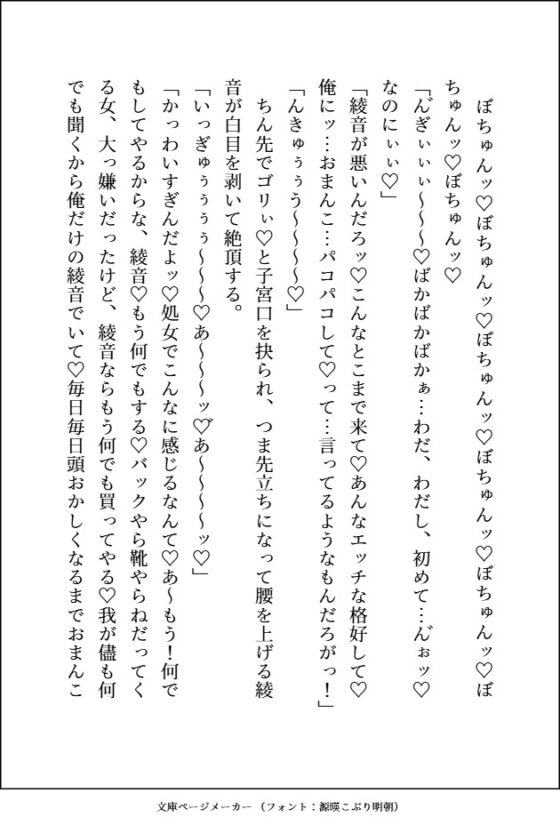 ぼちゅんッ♡ぼちゅんッ♡ぼちゅんッ♡ぼちゅんッ♡ぼちゅんッ♡ぼ
ちゅんッ♡ぼちゅんッ♡
「ん゛ぎぃぃぃ〜〜〜♡ばかばかばかぁ…わだ、わだし、初めて…ん゛ぉッ♡
なのにぃぃ♡」
「綾音が悪いんだろッ♡こんなとこまで来て♡あんなエッチな格好して♡
俺にッ…おまんこ…パコパコして♡って…言ってるようなもんだろがっ！」
「んきゅぅぅう〜〜〜〜♡」
ちん先でゴリぃ♡と子宮口を抉られ、つま先立ちになって腰を上げる綾
音が白目を剥いて絶頂する。
「いっぎゅぅぅぅぅ〜〜〜♡あ〜〜〜ッ♡゛あ〜〜〜〜ッ♡」
「かっわいすぎんだよッ♡処女でこんなに感じるなんて♡あ〜もう！何で
もしてやるからな、綾音♡もう何でもする♡バックやら靴やらねだってく
る女、大っ嫌いだったけど、綾音ならもう何でも買ってやる♡我が儘も何
でも聞くから俺だけの綾音でいて♡毎日毎日頭おかしくなるまでおまんこ
文庫ページメーカー（フォント：源暎こぶり明朝）